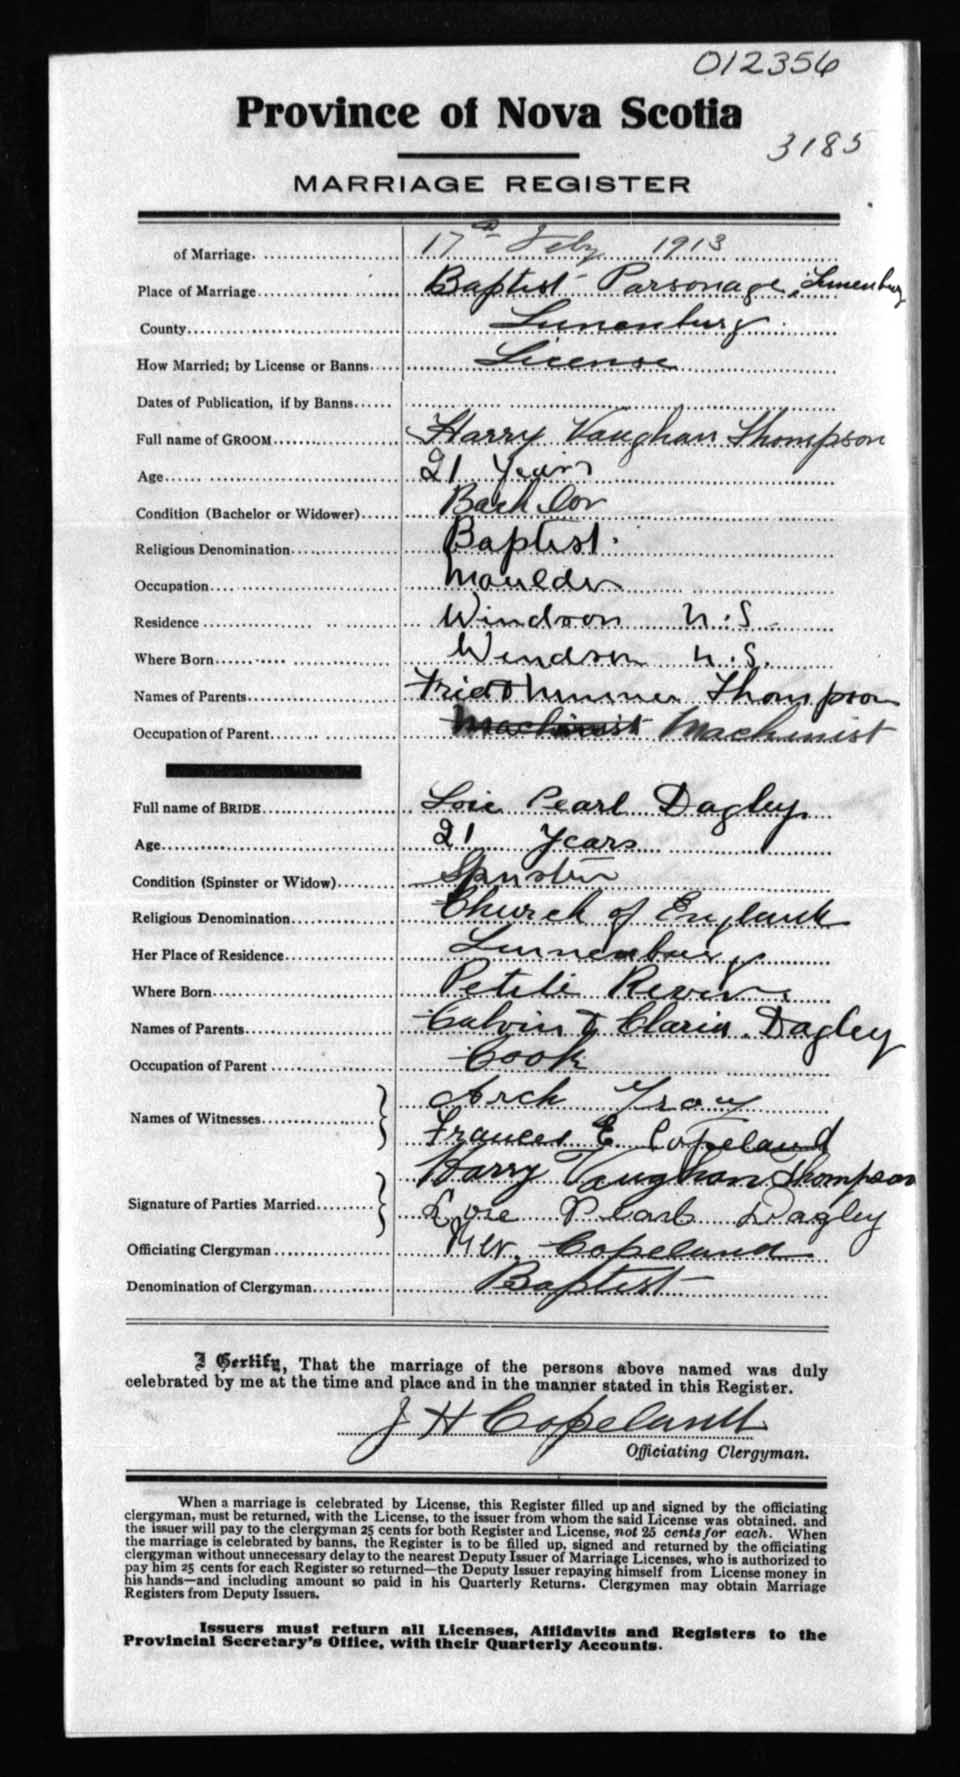 012356
Province of Nova Scotia
3185
MARRIAGE REGISTER
of Marriage. 17th Feby 1913
Place of Marriage Baptist Parsonage, Lunenburg
County Lunenburg
How Married; by License or Banns License
Dates of Publication, if by Banns
Full name of GROOM Harry Vaughan Thompson
Age 21 Years
Condition (Bachelor or Widower) Bachelor
Religious Denomination Baptist
Occupation Moulder
Residence Windsor N.S.
Where Born Windsor N.S.
Names of Parents Thompson
Occupation of Parent Machinist Machinist
Full name of BRIDE Loie Pearl Dagley
Age 21 Years
Condition (Spinster or Widow) Spinster
Religious Denomination Church of England
Her Place of Residence Lunenburg
Where Born Petite Riviere
Names of Parents Calvin & Claria Dagley
Occupation of Parent Cook
Names of Witnesses Arch Troy
Frances E Copeland
Signature of Parties Married Harry Vaughan Thompson
Loie Pearl Dagley
Officiating Clergyman Rev. Copeland
Denomination of Clergyman Baptist
I Certify, That the marriage of the persons above named was duly
celebrated by me at the time and place and in the manner stated in this Register.
J H Copeland
Officiating Clergyman.
When a marriage is celebrated by License, this Register filled up and signed by the officiating
clergyman, must be returned, with the License, to the issuer from whom the said License was obtained, and
the issuer will pay to the clergyman 25 cents for both Register and License, not 25 cents for each. When
the marriage is celebrated by banns, the Register is to be filled up, signed and returned by the officiating
clergyman without unnecessary delay to the nearest Deputy Issuer of Marriage Licenses, who is authorized to
pay him 25 cents for each Register so returned—the Deputy Issuer repaying himself from License money in
his hands—and including amount so paid in his Quarterly Returns. Clergymen may obtain Marriage
Registers from Deputy Issuers.
Issuers must return all Licenses, Affidavits and Registers to the
Provincial Secretary's Office, with their Quarterly Accounts.